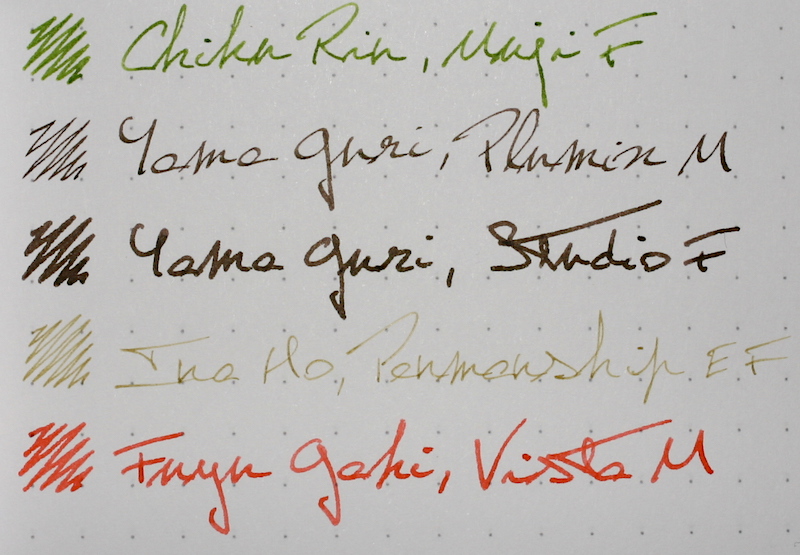 Chiku Rin, Muji F
Yama guri, Plumix M
Yama guri, Studio F
Ina Ho, Penmanship EF
Fuyu Gaki, Vista M